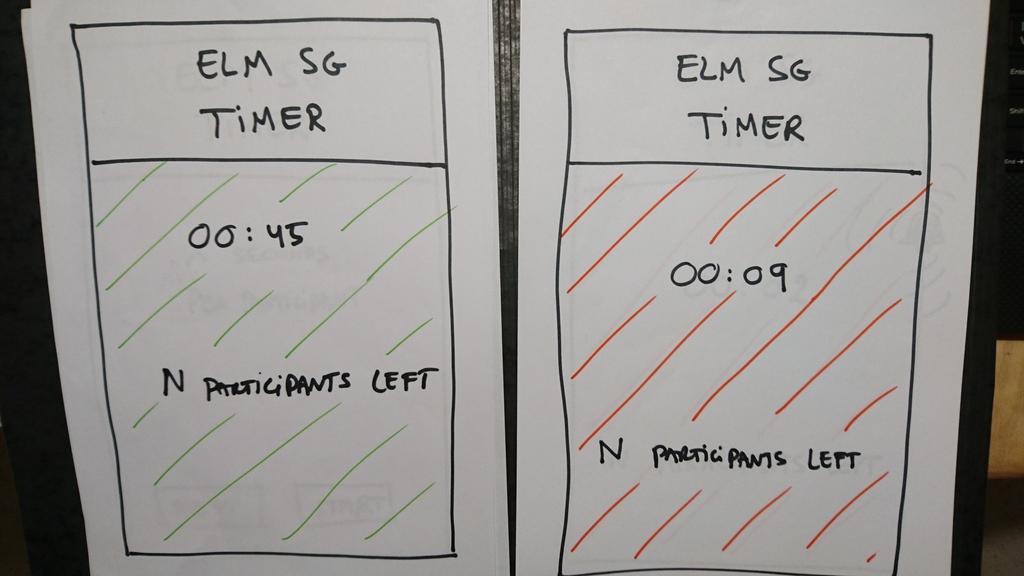 ELM SG
TiMER
00:45
N PARTiCiPANTS LEFT
ELM SG
TiMER
00:09
N PARTiCiPANTS LEFT